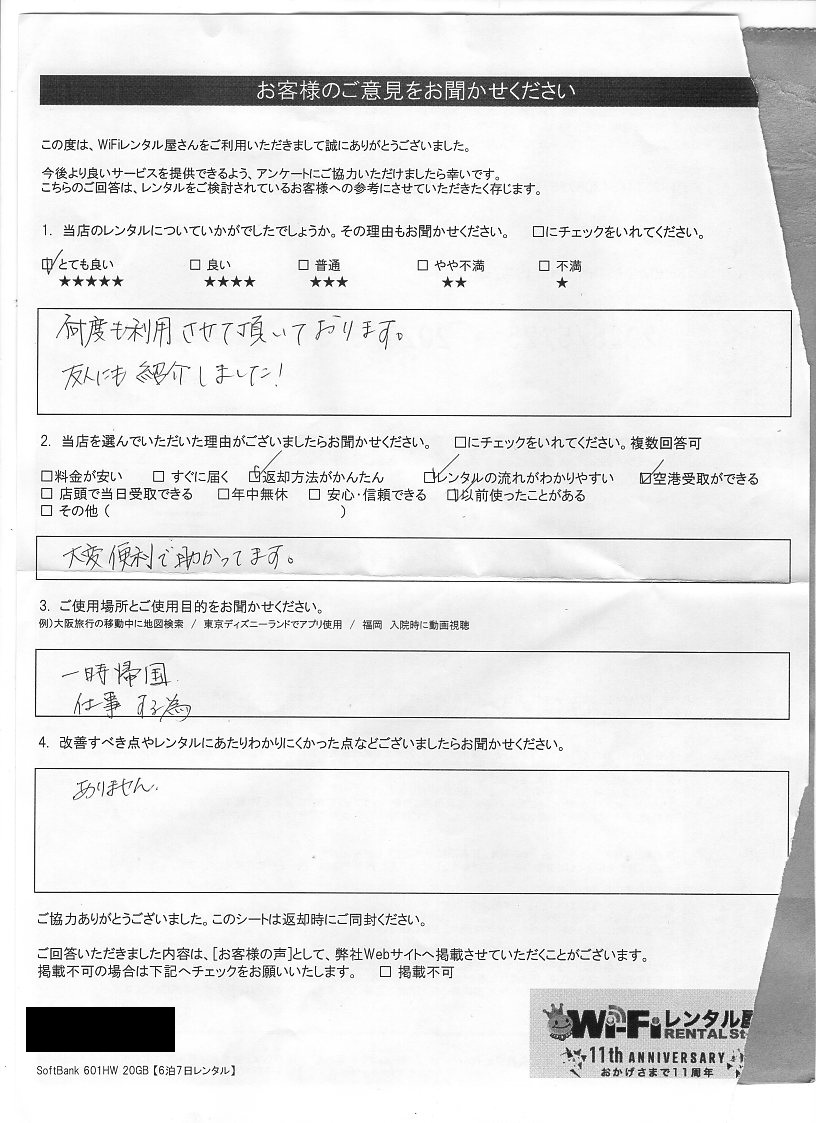 お客様のご意見をお聞かせください
この度は、WiFiレンタル屋さんをご利用いただきまして誠にありがとうございました。
今後より良いサービスを提供できるよう、アンケートにご協力いただけましたら幸いです。
こちらのご回答は、レンタルをご検討されているお客様への参考にさせていただきたく存じます。
1. 当店のレンタルについていかがでしたでしょうか。その理由もお聞かせください。 □にチェックをいれてください。
☑とても良い □ 良い □ 普通 □ やや不満 □ 不満
★★★★★ ★★★★ ★★★ ★★ ★
何度も利用させて頂いております。
友人にも紹介しました!
2. 当店を選んでいただいた理由がございましたらお聞かせください。 □にチェックをいれてください。複数回答可
□料金が安い □ すぐに届く ☑返却方法がかんたん ☑レンタルの流れがわかりやすい ☑空港受取ができる
□ 店頭で当日受取できる □年中無休 □ 安心・信頼できる ☑以前使ったことがある
□ その他 ( )
大変便利で助かってます。
3. ご使用場所とご使用目的をお聞かせください。
例)大阪旅行の移動中に地図検索 / 東京ディズニーランドでアプリ使用 / 福岡 入院時に動画視聴
一時帰国
仕事する為
4. 改善すべき点やレンタルにあたりわかりにくかった点などございましたらお聞かせください。
ありません.
ご協力ありがとうございました。このシートは返却時にご同封ください。
ご回答いただきました内容は、[お客様の声]として、弊社Webサイトへ掲載させていただくことがございます。
掲載不可の場合は下記へチェックをお願いいたします。 □ 掲載不可
Wi-Fiレンタル屋
RENTAL St
11th ANNIVERSARY
おかげさまで11周年
SoftBank 601HW 20GB【6泊7日レンタル】